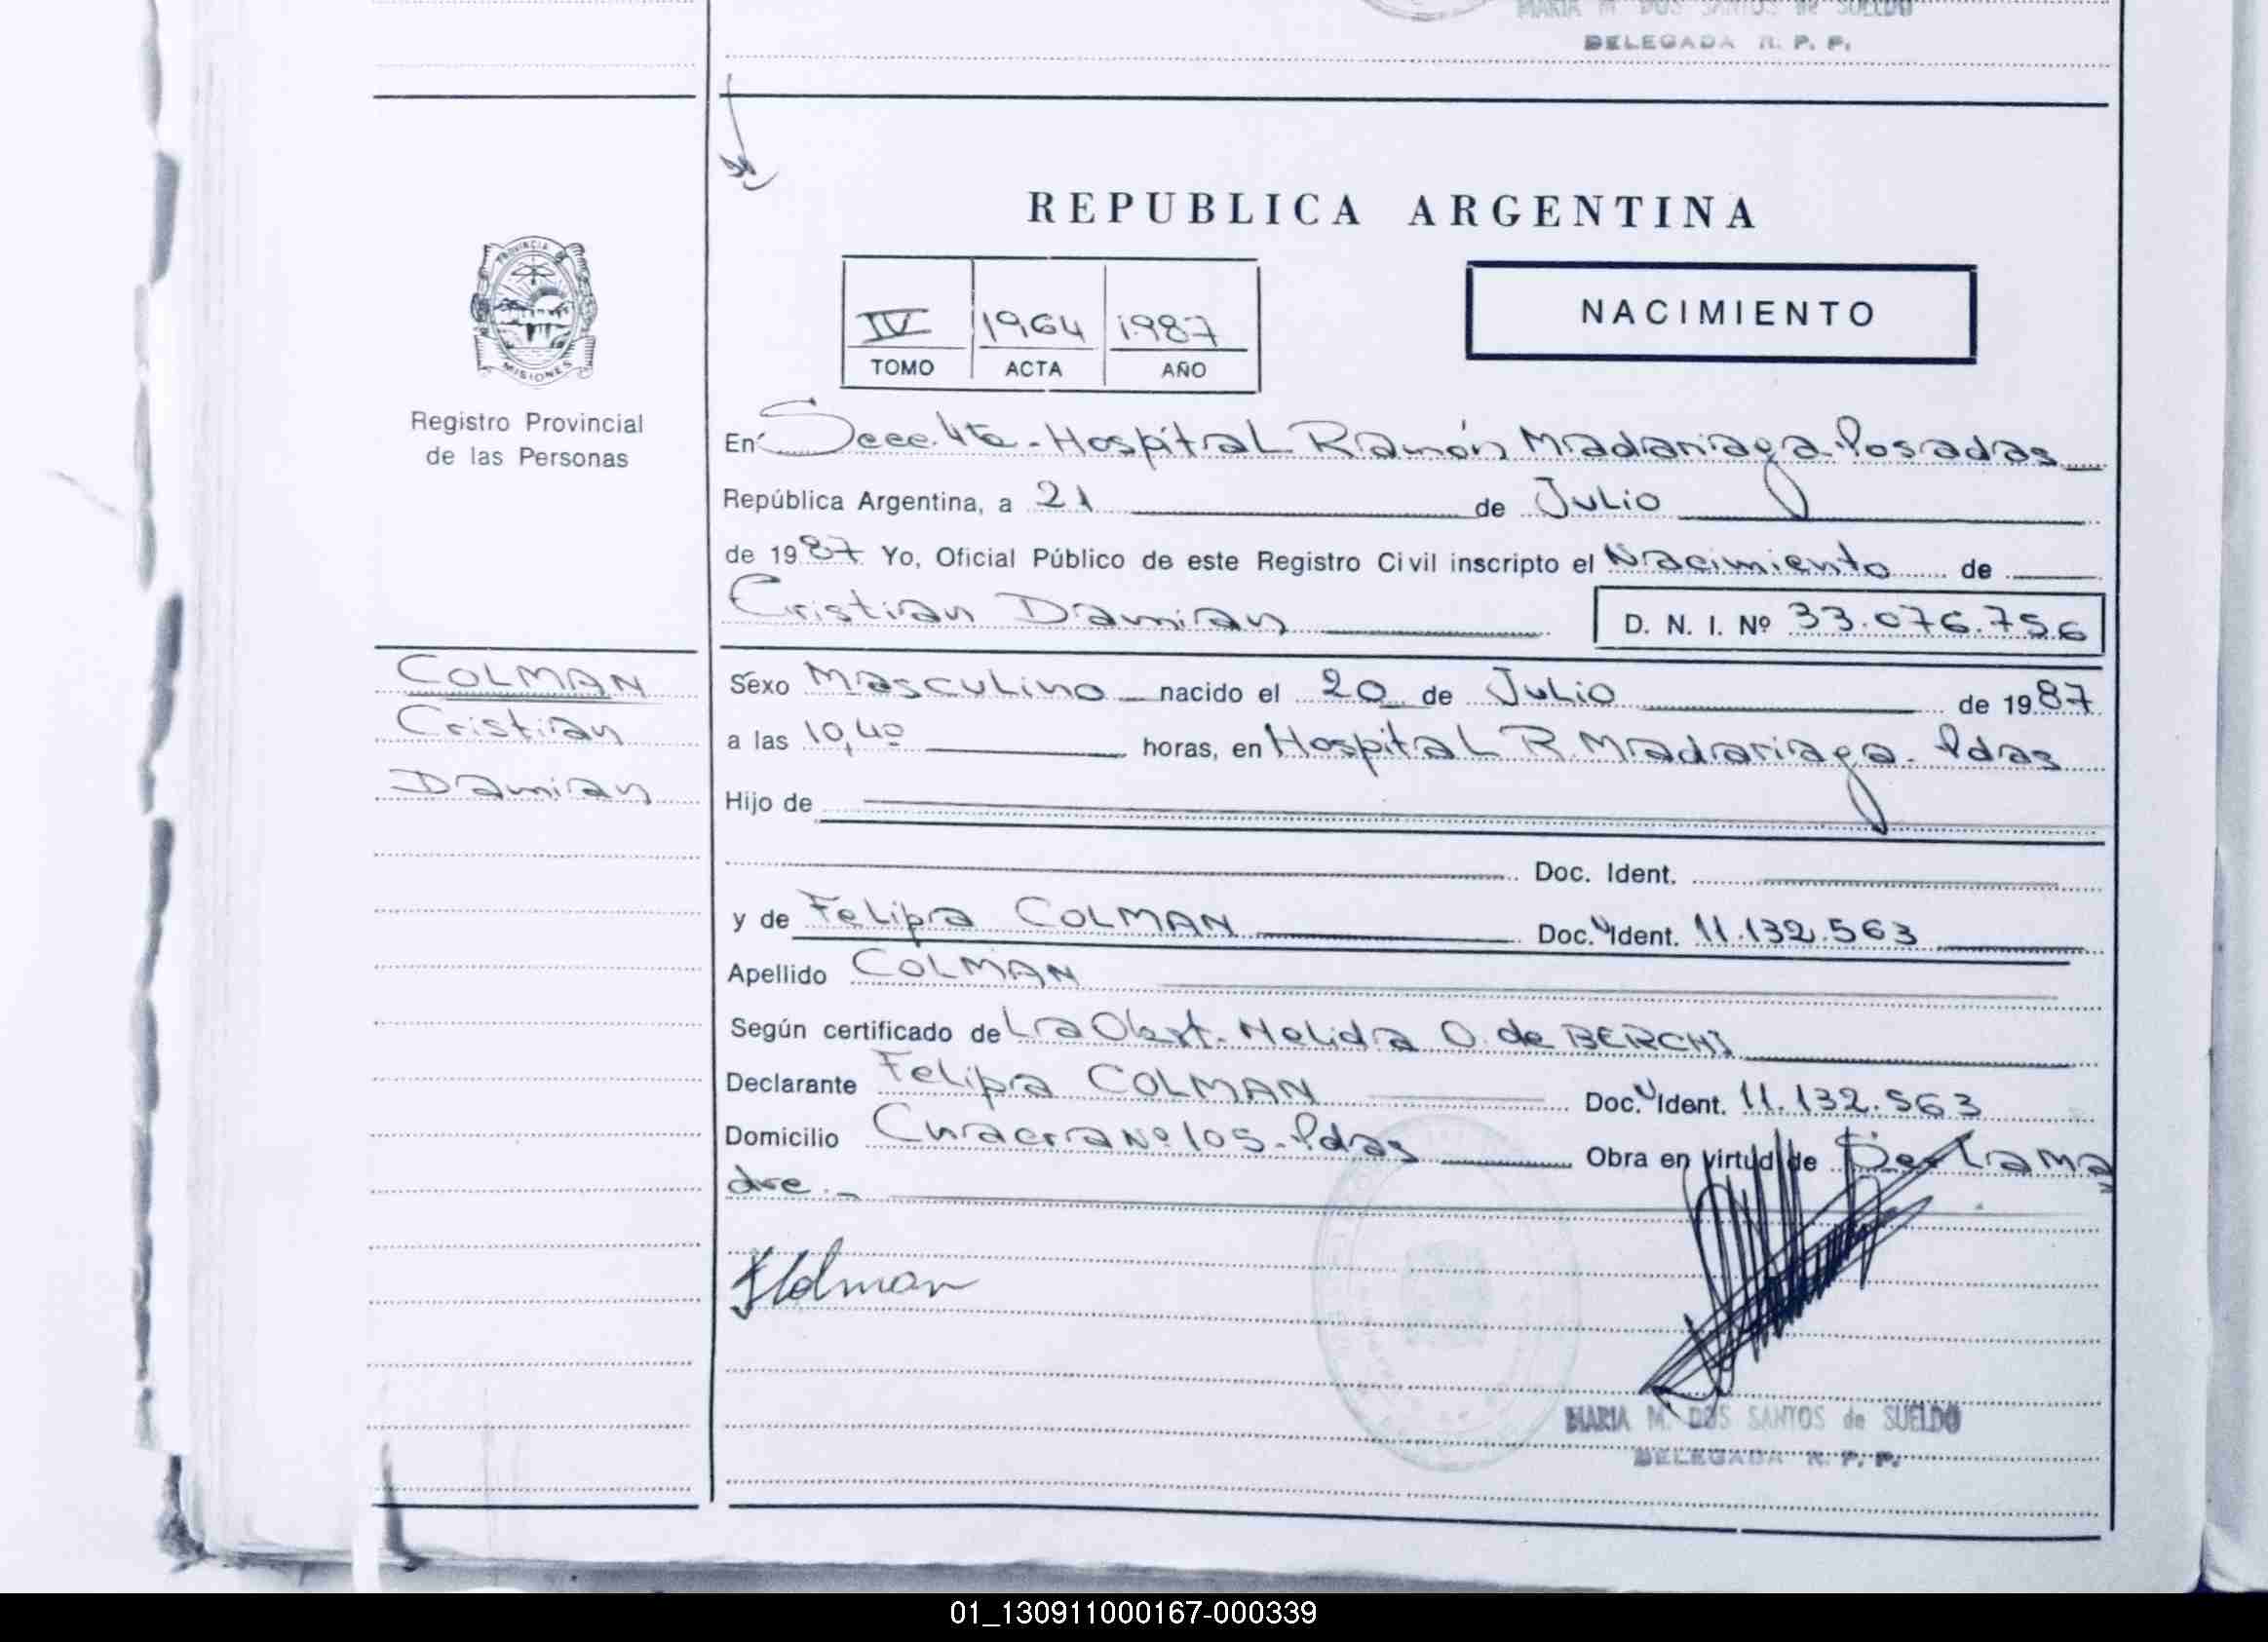 MARIA M. DOS SANTOS de SUELDO
DELEGADA R. P. P.
REPUBLICA ARGENTINA
PROVINCIA
MISIONES
Registro Provincial
de las Personas
IV 1964 1987
TOMO ACTA AÑO
NACIMIENTO
En Secc. 4ta - Hospital Ramón Madariaga. Posadas
República Argentina, a 21 de Julio
de 1987 Yo, Oficial Público de este Registro Civil inscripto el Nacimiento de
Cristian Damian D. N. I. Nº 33.076.756
COLMAN
Cristian
Damian
Sexo Masculino nacido el 20 de Julio de 1987
a las 10,40 horas, en Hospital R. Madariaga. Pdas
Hijo de
Doc. Ident.
y de Felipa COLMAN Doc. Ident. 11.132.563
Apellido COLMAN
Según certificado de La Obst. Nelida O. de BERCHI
Declarante Felipa COLMAN Doc. Ident. 11.132.563
Domicilio Chacra Nº 105 - Pdas Obra en virtud de Ser La ma
dre.-
MARIA M. DOS SANTOS de SUELDO
DELEGADA R. P. P.
01_130911000167-000339